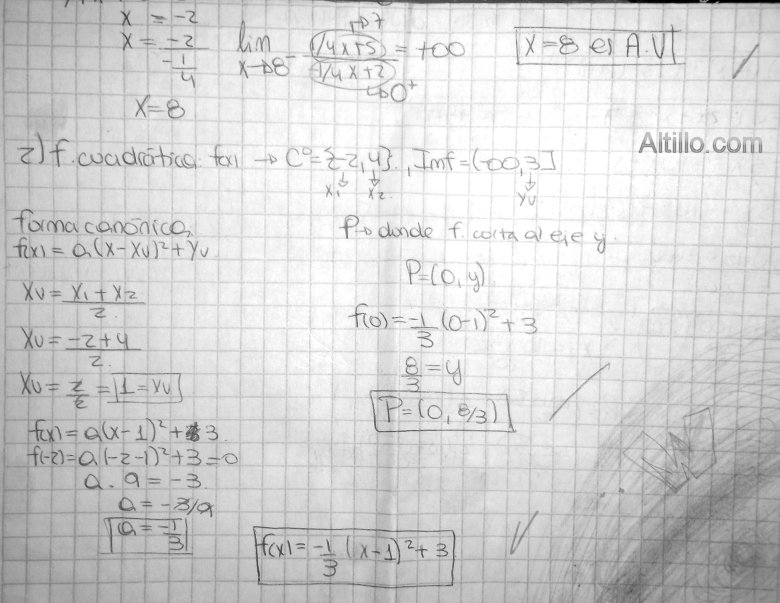 x = -2
x = -2 / -1/4
x = 8
lim x→8⁻ (1/4x+5) / (-1/4x+2) = +∞
→7
→0⁺
x=8 es A.V
Altillo.com
2) f. cuadrática f(x) → C⁰={-2,4}, Imf=(-∞,3]
x₁ x₂ yv
forma canónica,
f(x) = a(x-xv)²+yv
xv = x₁+x₂ / 2
xv = -2+4 / 2
xv = 2/2 = 1 = xv
f(x) = a(x-1)²+3
f(-2) = a(-2-1)²+3=0
a.9 = -3
a = -3/9
a = -1/3
P→ donde f. corta al eje y.
P=(0,y)
f(0)= -1/3 (0-1)²+3
8/3 = y
P=(0, 8/3)
f(x) = -1/3 (x-1)²+3